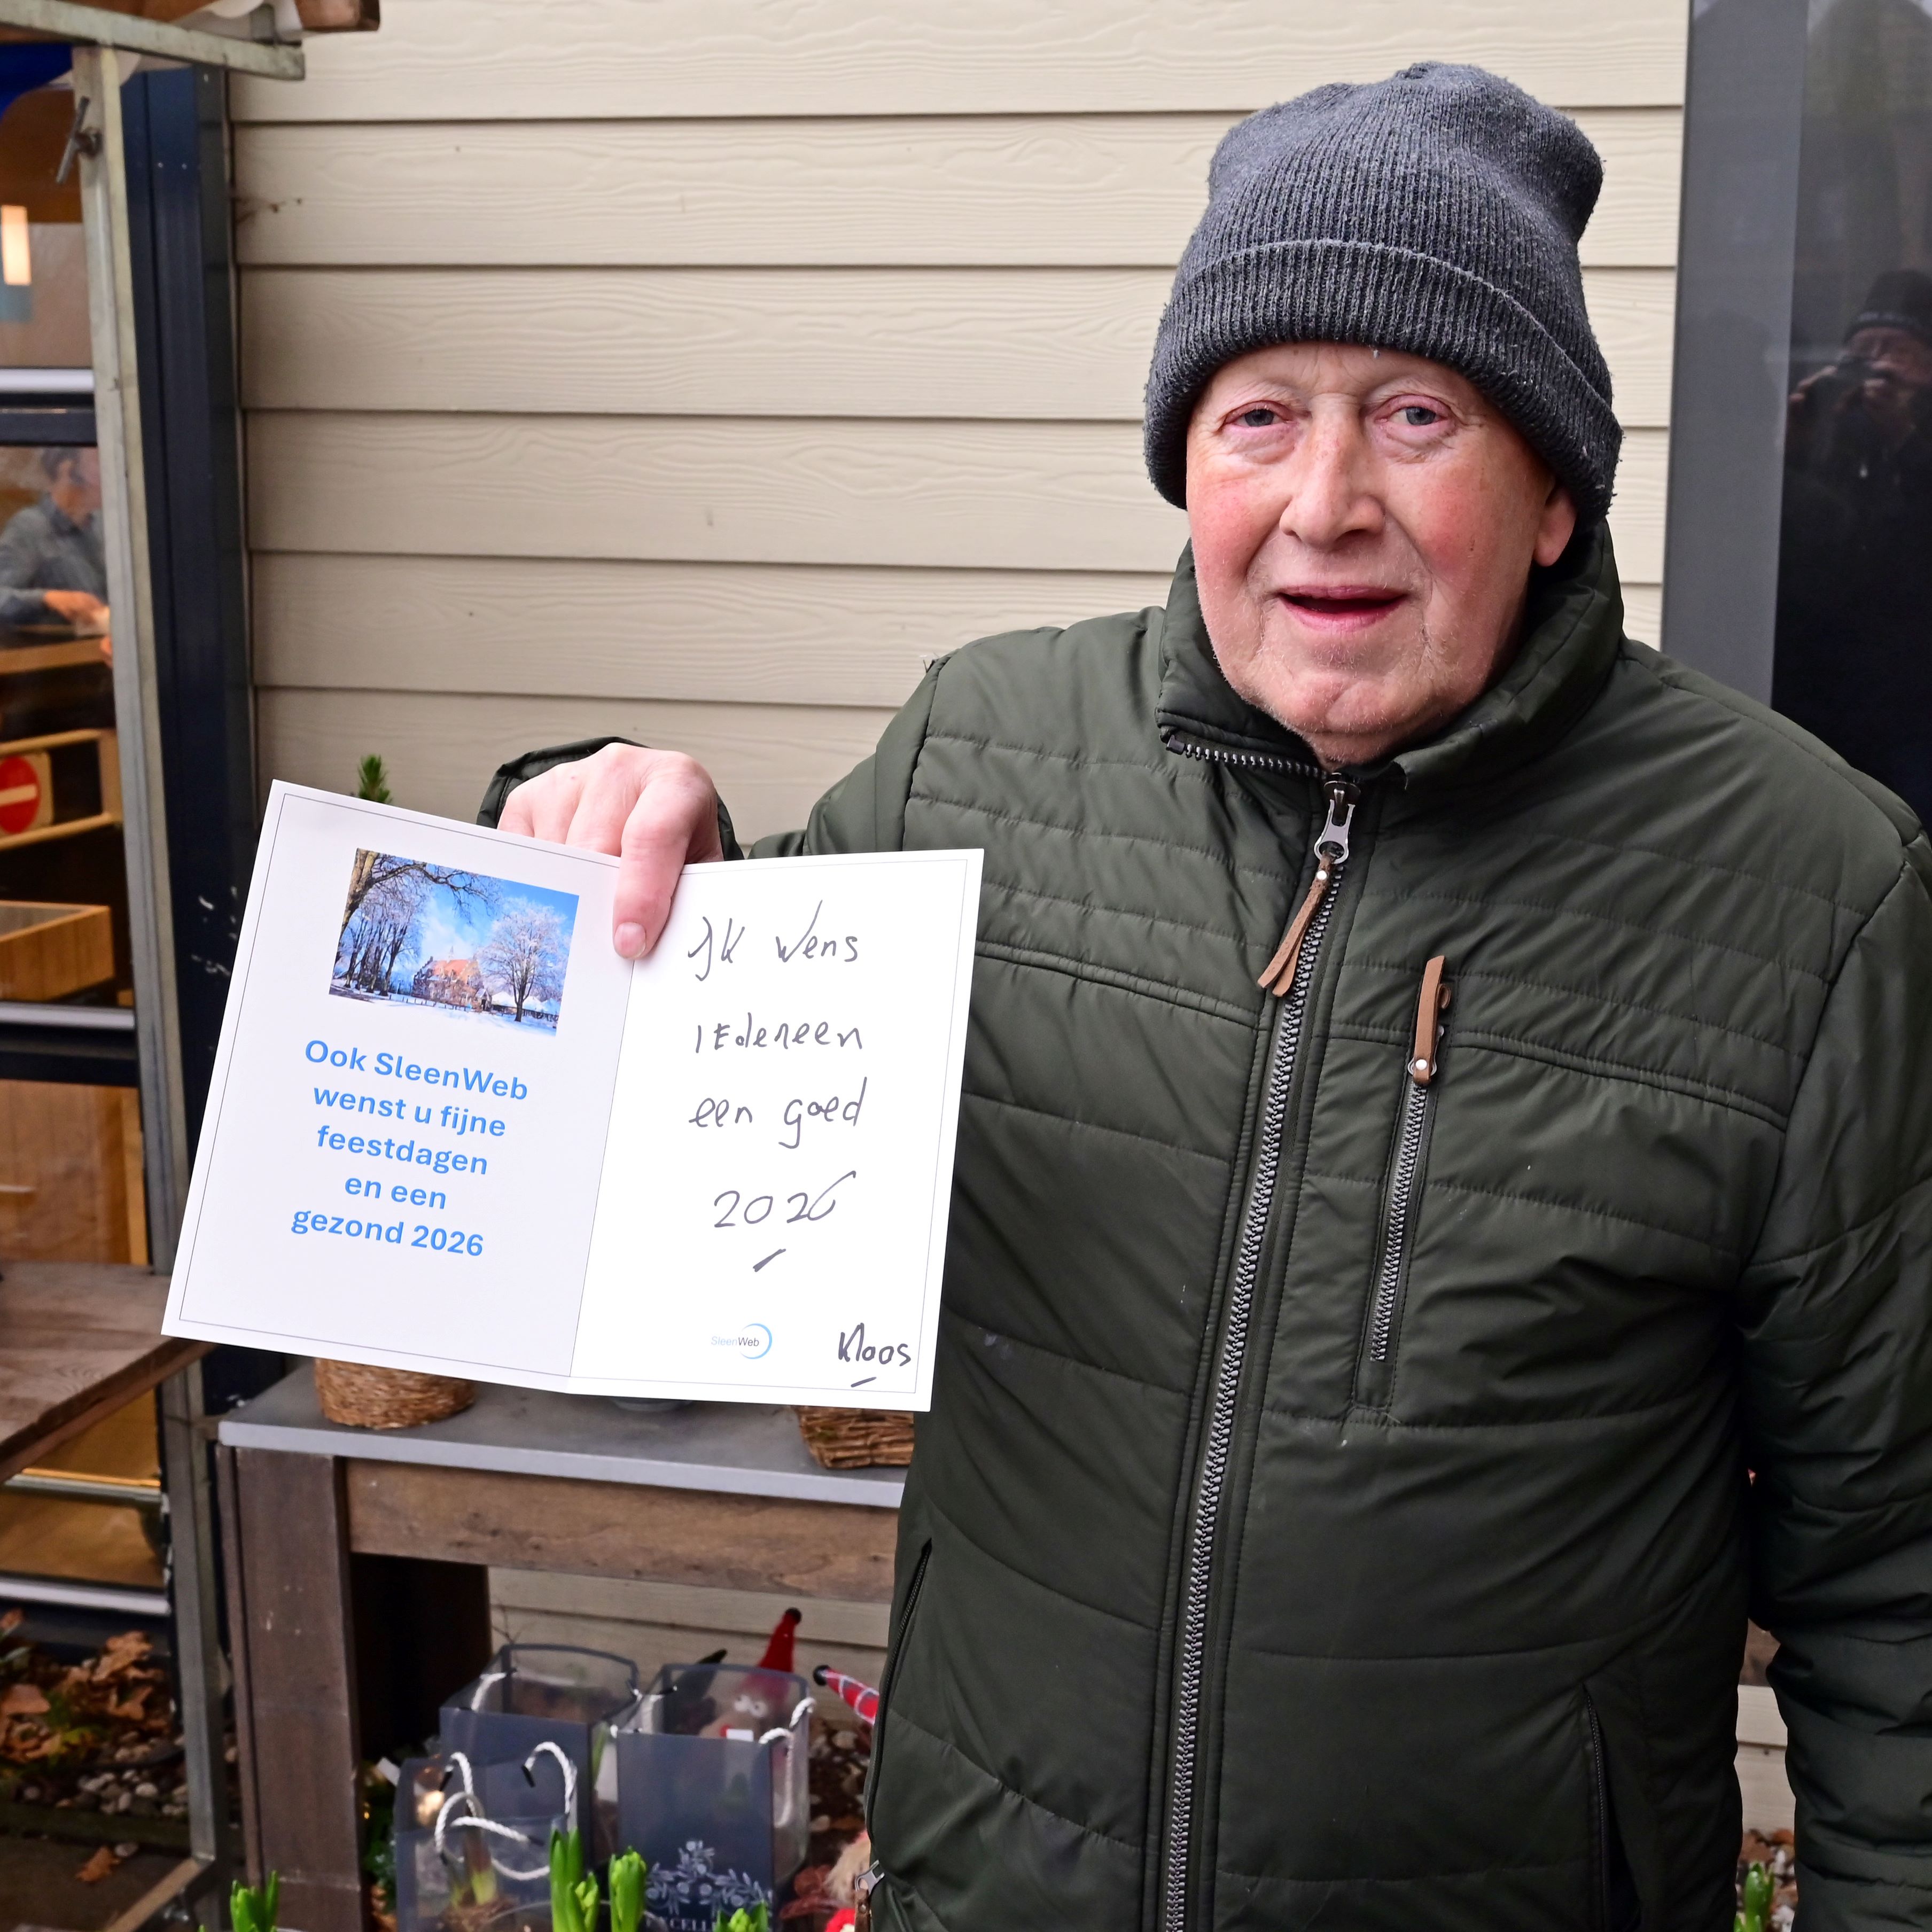 Ook SleenWeb
wenst u fijne
feestdagen
en een
gezond 2026
Ik wens
iedereen
een goed
2026
SleenWeb
Kloos